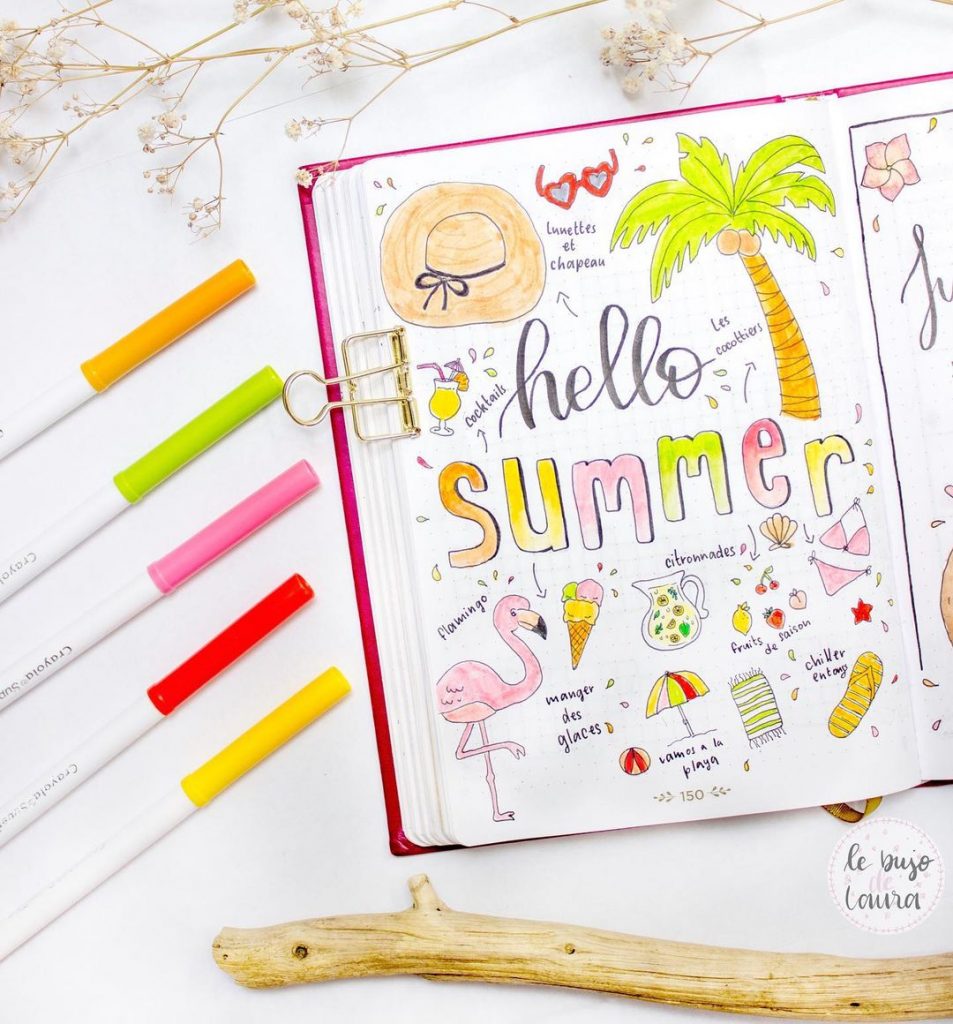 lunettes
et
chapeau
les
cocottiers
cocktails
hello
summer
flamingo
citronnades
manger
des
glaces
fruits
de saison
chiller
en tongs
vamos a la
playa
150
Ju
Crayola
Crayola
Crayola® Sup
Crayola
Crayola® Super
le bujo
de
Laura